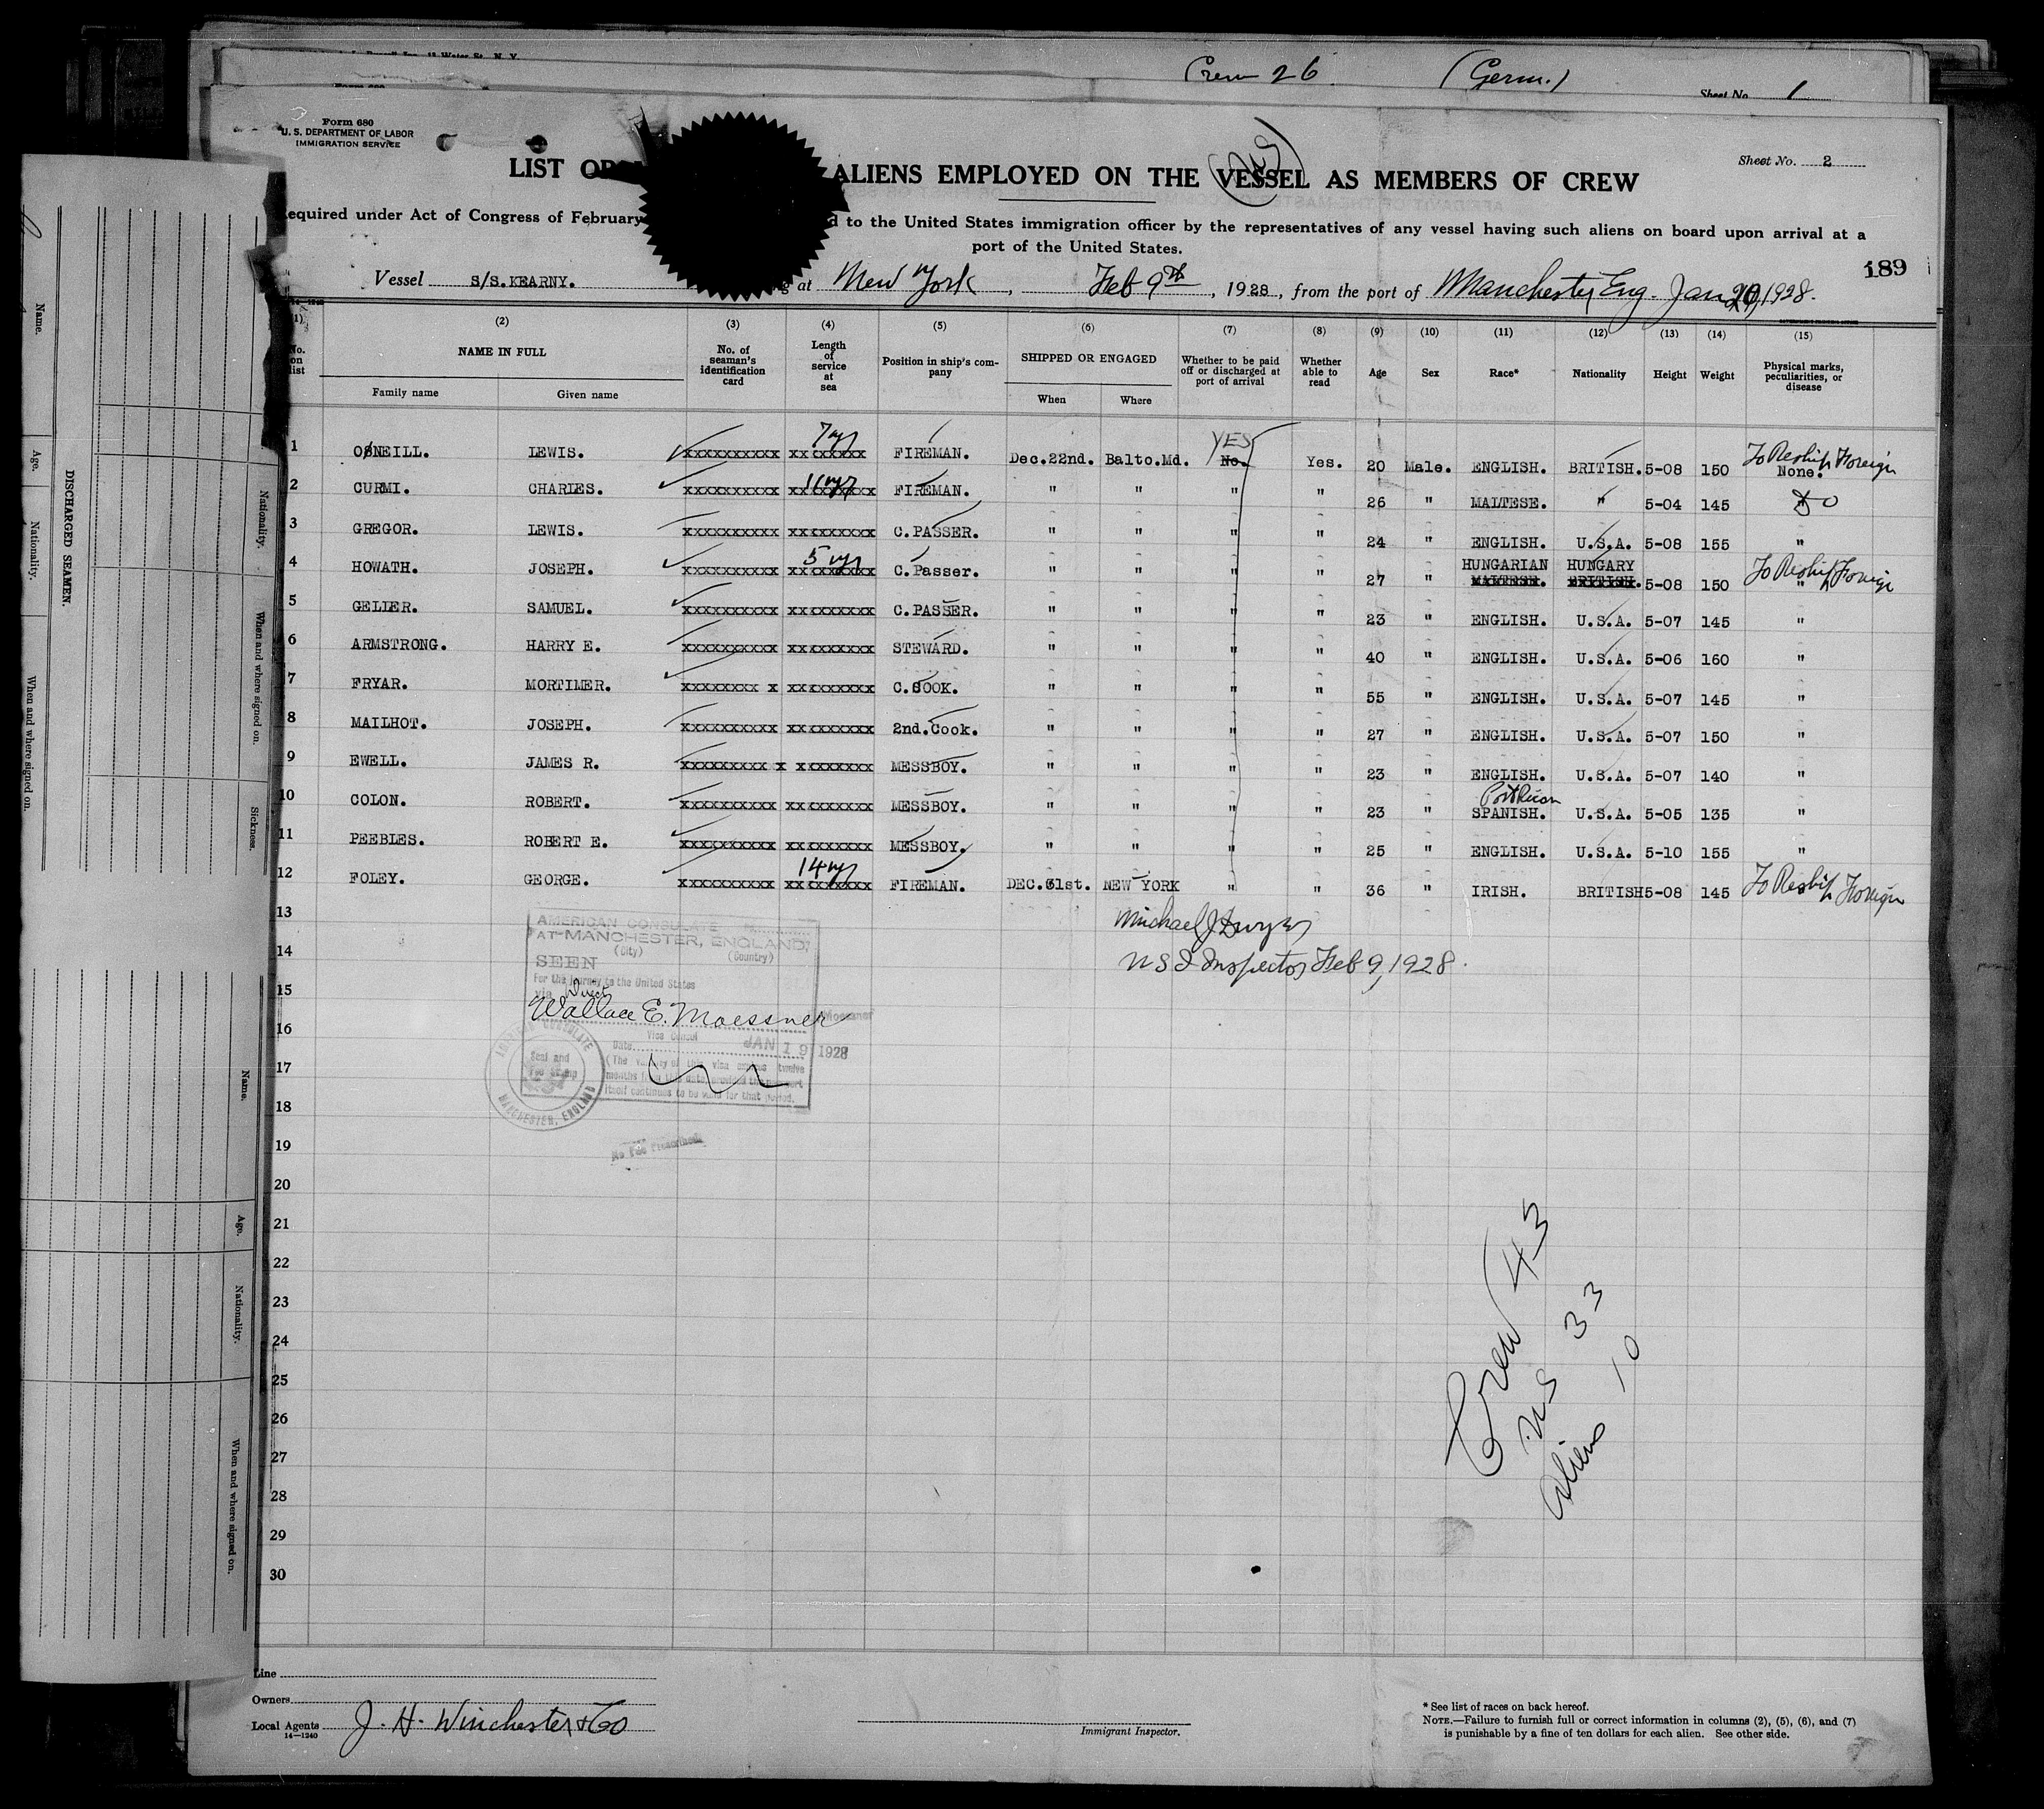 Crew 26 (Germ.) Sheet No. 1
Form 680
U. S. DEPARTMENT OF LABOR
IMMIGRATION SERVICE
Sheet No. 2
LIST OR ALIENS EMPLOYED ON THE VESSEL AS MEMBERS OF CREW
US
equired under Act of Congress of February d to the United States immigration officer by the representatives of any vessel having such aliens on board upon arrival at a
port of the United States.
189
Vessel S/S.KEARNY. g at New York, Feb 9th, 1928, from the port of Manchester Eng. Jan 1928.
(1) (2) (3) (4) (5) (6) (7) (8) (9) (10) (11) (12) (13) (14) (15)
No. on list NAME IN FULL No. of seaman's identification card Length of service at sea Position in ship's company SHIPPED OR ENGAGED Whether to be paid off or discharged at port of arrival Whether able to read Age Sex Race* Nationality Height Weight Physical marks, peculiarities, or disease
Family name Given name When Where
1 O'NEILL. LEWIS. xxxxxxxxxx 7 yr FIREMAN. Dec.22nd. Balto.Md. YES No. Yes. 20 Male. ENGLISH. BRITISH. 5-08 150 To Reship Foreign None.
2 CURMI. CHARLES. xxxxxxxxxx 11 yr FIREMAN. " " " " 26 " MALTESE. " 5-04 145 DO
3 GREGOR. LEWIS. xxxxxxxxxx xxxxxxxxx C.PASSER. " " " " 24 " ENGLISH. U.S.A. 5-08 155 "
4 HOWATH. JOSEPH. xxxxxxxxxx 5 yr C.Passer. " " " " 27 " HUNGARIAN MALTESE. HUNGARY BRITISH. 5-08 150 To Reship Foreign "
5 GELIER. SAMUEL. xxxxxxxxxx xxxxxxxxx C.PASSER. " " " " 23 " ENGLISH. U.S.A. 5-07 145 "
6 ARMSTRONG. HARRY E. xxxxxxxxxx xxxxxxxxx STEWARD. " " " " 40 " ENGLISH. U.S.A. 5-06 160 "
7 FRYAR. MORTIMER. xxxxxxxx x xxxxxxxxx C.COOK. " " " " 55 " ENGLISH. U.S.A. 5-07 145 "
8 MAILHOT. JOSEPH. xxxxxxxxxx xxxxxxxxx 2nd.Cook. " " " " 27 " ENGLISH. U.S.A. 5-07 150 "
9 EWELL. JAMES R. xxxxxxxxx x x xxxxxxx MESSBOY. " " " " 23 " ENGLISH. U.S.A. 5-07 140 "
10 COLON. ROBERT. xxxxxxxxxx xxxxxxxxx MESSBOY. " " " " 23 " Port Rican SPANISH. U.S.A. 5-05 135 "
11 PEEBLES. ROBERT E. xxxxxxxxxx xxxxxxxxx MESSBOY. " " " " 25 " ENGLISH. U.S.A. 5-10 155 "
12 FOLEY. GEORGE. xxxxxxxxxx 14 yr FIREMAN. DEC.31st. NEW YORK " " 36 " IRISH. BRITISH 5-08 145 To Reship Foreign
13
Michael J Dwyer
14
U S I Inspector Feb 9, 1928.
15
16
17
18
19
20
21
22
23
24
25
26
27
28
29
30
AMERICAN CONSULATE
AT MANCHESTER, ENGLAND,
(City) (Country)
SEEN
For the journey to the United States
via Direct
Wallace E. Moessner
Vice Consul
Date JAN 19 1928
(The validity of this visa expires twelve
months from this date, provided the passport
itself continues to be valid for that period.
Seal and
Fee Stamp
MANCHESTER, ENGLAND
No Fee Prescribed
Crew 43
US 33
Aliens 10
Line
Owners
Local Agents J. H. Winchester & Co
14—1240
Immigrant Inspector.
* See list of races on back hereof.
NOTE.—Failure to furnish full or correct information in columns (2), (5), (6), and (7)
is punishable by a fine of ten dollars for each alien. See other side.
DISCHARGED SEAMEN.
Name. Age. Nationality. When and where signed on.
Nationality. When and where signed on. Sickness.
Name. Age. Nationality. When and where signed on.